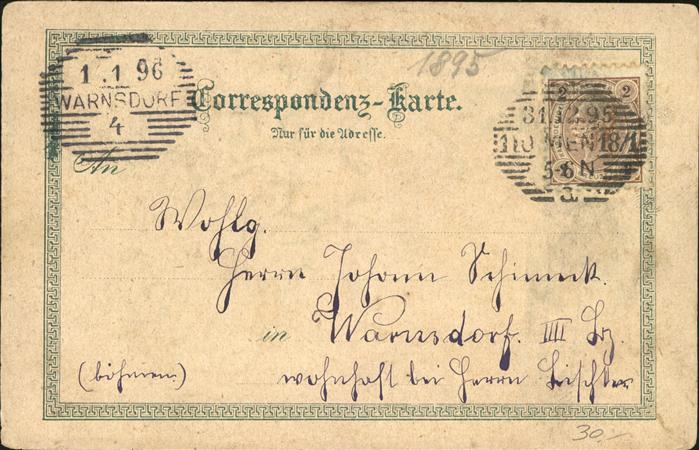 1895
1 . 1 96
WARNSDORF
4
Correspondenz-Karte.
Nur für die Adresse.
2 2
31.12.95
110 MEN 18/1
5-6 N
a
An
Wohlg.
Herrn Johann Schimeck.
in Warnsdorf. IIII Bz.
(böhmen)
wohnhaft bei Herrn
30.-